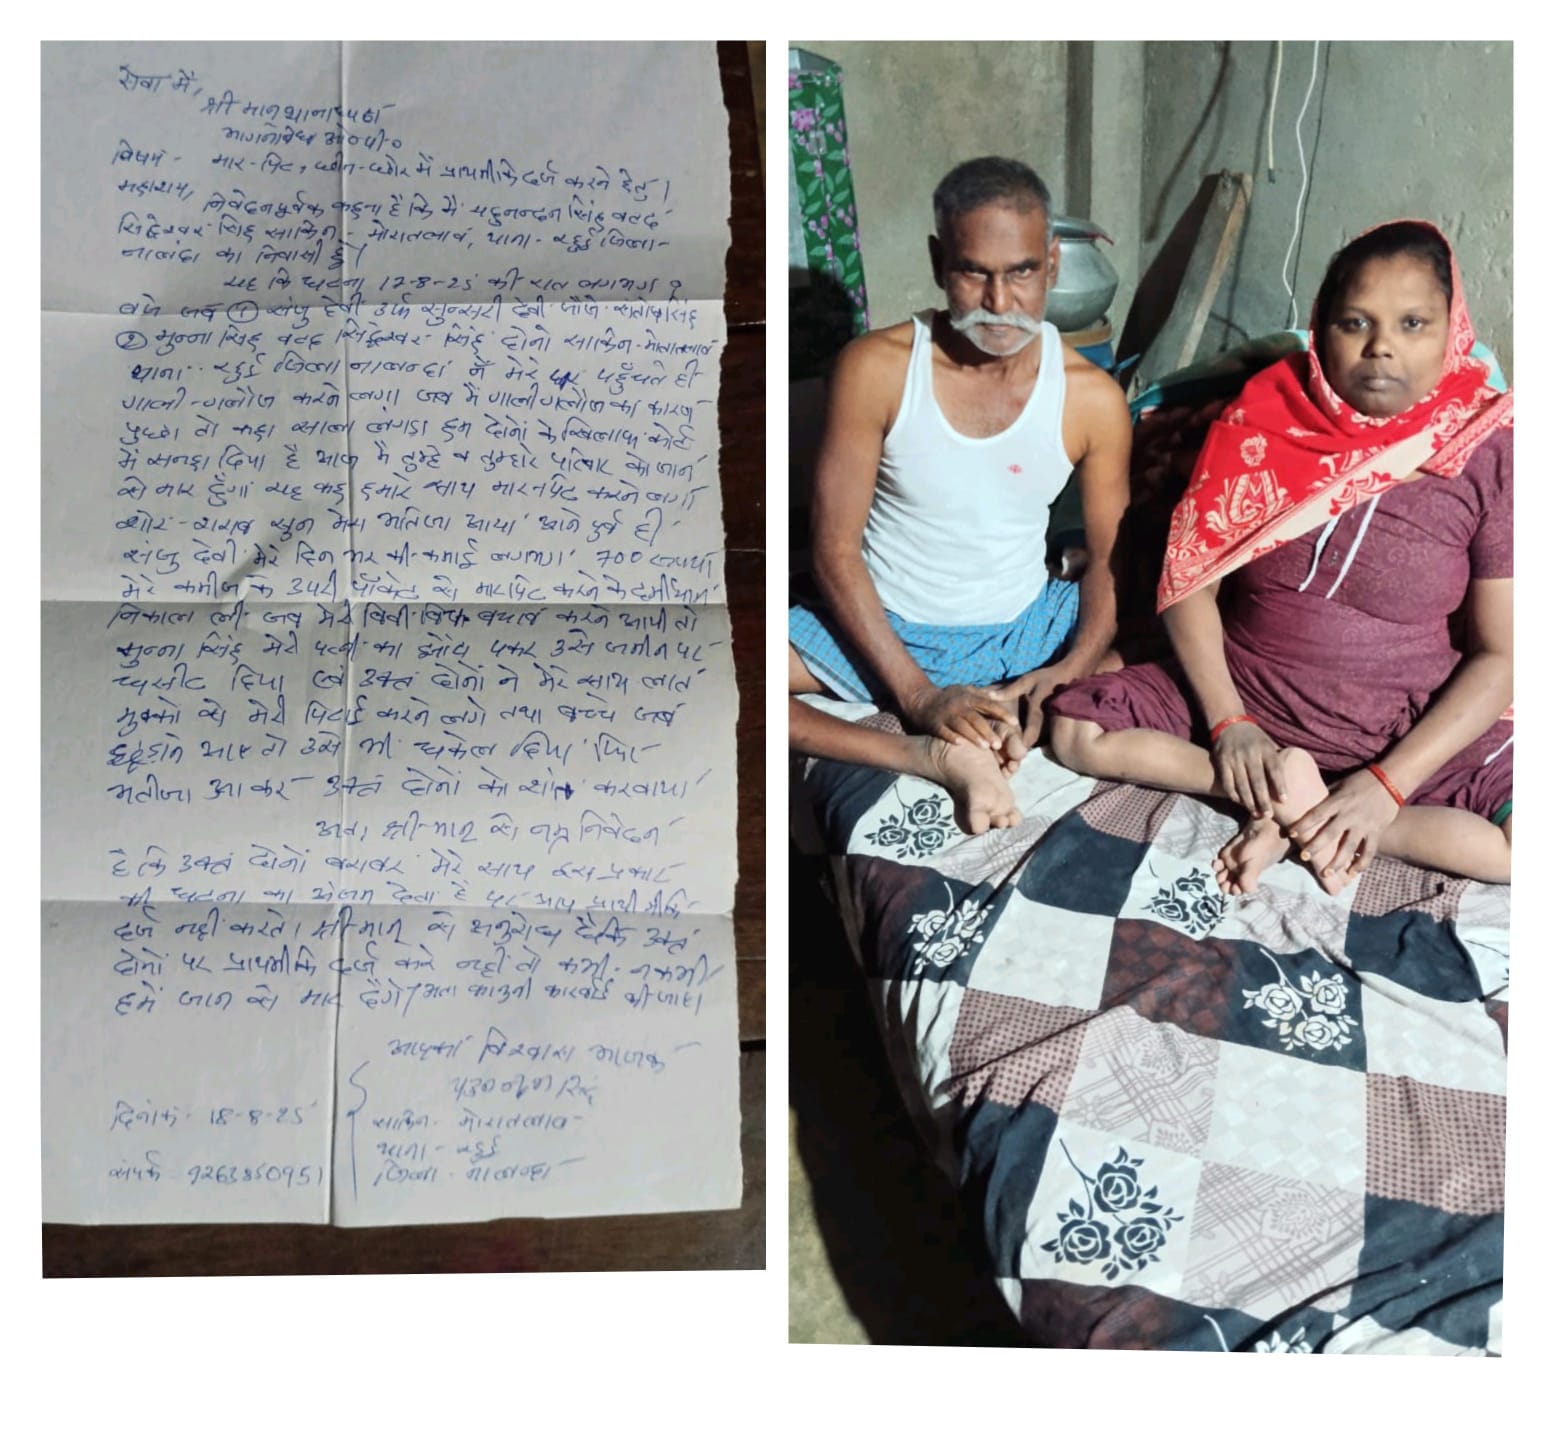 सेवा में,
श्री मान् थानाध्यक्ष
भागनबिघा ओ०पी०
विषय - मार-पिट, छीन-छोर में प्राथमीकि दर्ज करने हेतु।
महाशय, निवेदनपूर्वक कहना है कि मैं यदुनन्दन सिंह वल्द
सिद्धेश्वर सिंह साकिन - मोरातलाव, थाना - रहुई जिला -
नालंदा का निवासी हूँ।
यह कि घटना 17-8-25 की रात लगभग 9
बजे जब ① संजु देवी उर्फ सुन्सरी देवी जौजे संतोष सिंह
② मुन्ना सिंह वल्द सिद्धेश्वर सिंह दोनो साकिन - मोरातलाव
थाना - रहुई जिला नालन्दा ने मेरे घर पहुँचते ही
गाली-गलौज करने लगा जब मैं गाली गलौज का कारण
पुछा तो कहा साला लंगड़ा हम दोनों के खिलाफ कोर्ट
में सनहा दिया है आज मैं तुम्हे व तुम्हारे परिवार को जान
से मार दूँगा यह कह हमारे साथ मारपिट करने लगा
शोर-शराब सुन मेरा भतिजा आया आने पुर्व ही
संजु देवी मेरे दिन भर की कमाई लगभग 700 रूपया
मेरे कमीज के उपरी पॉकेट से मारपिट करने के दर्मीयान
निकाल ली जब मेरी बिवी बिच बचाव करने आयी तो
मुन्ना सिंह मेरी पत्नी का झोंटा पकर उसे जमीन पर
घसीट दिया एवं उक्त दोनों ने मेरे साथ लात
मुक्को से मेरी पिटाई करने लगे तथा बच्चे जब
छुड़ाने आए तो उसे भी धकेल दिया फिर
भतीजा आकर उक्त दोनों को शांत करवाया
अतः श्रीमान् से नम्र निवेदन
है कि उक्त दोनों बराबर मेरे साथ इस प्रकार
की घटना का अंजाम देता है पर आप प्राथमीकि
दर्ज नहीं करते। श्रीमान् से अनुरोध है कि उक्त
दोनों पर प्राथमीकि दर्ज करे नहीं तो कभी न कभी
हमें जान से मार देंगे। अतः कानुनी कारवाई की जाए।
आपका विश्वास भाजक
यदुनन्दन सिंह
दिनांक - 18-8-25
साकिन - मोरातलाव
थाना - रहुई
संपर्क - 9263850951
जिला - नालन्दा